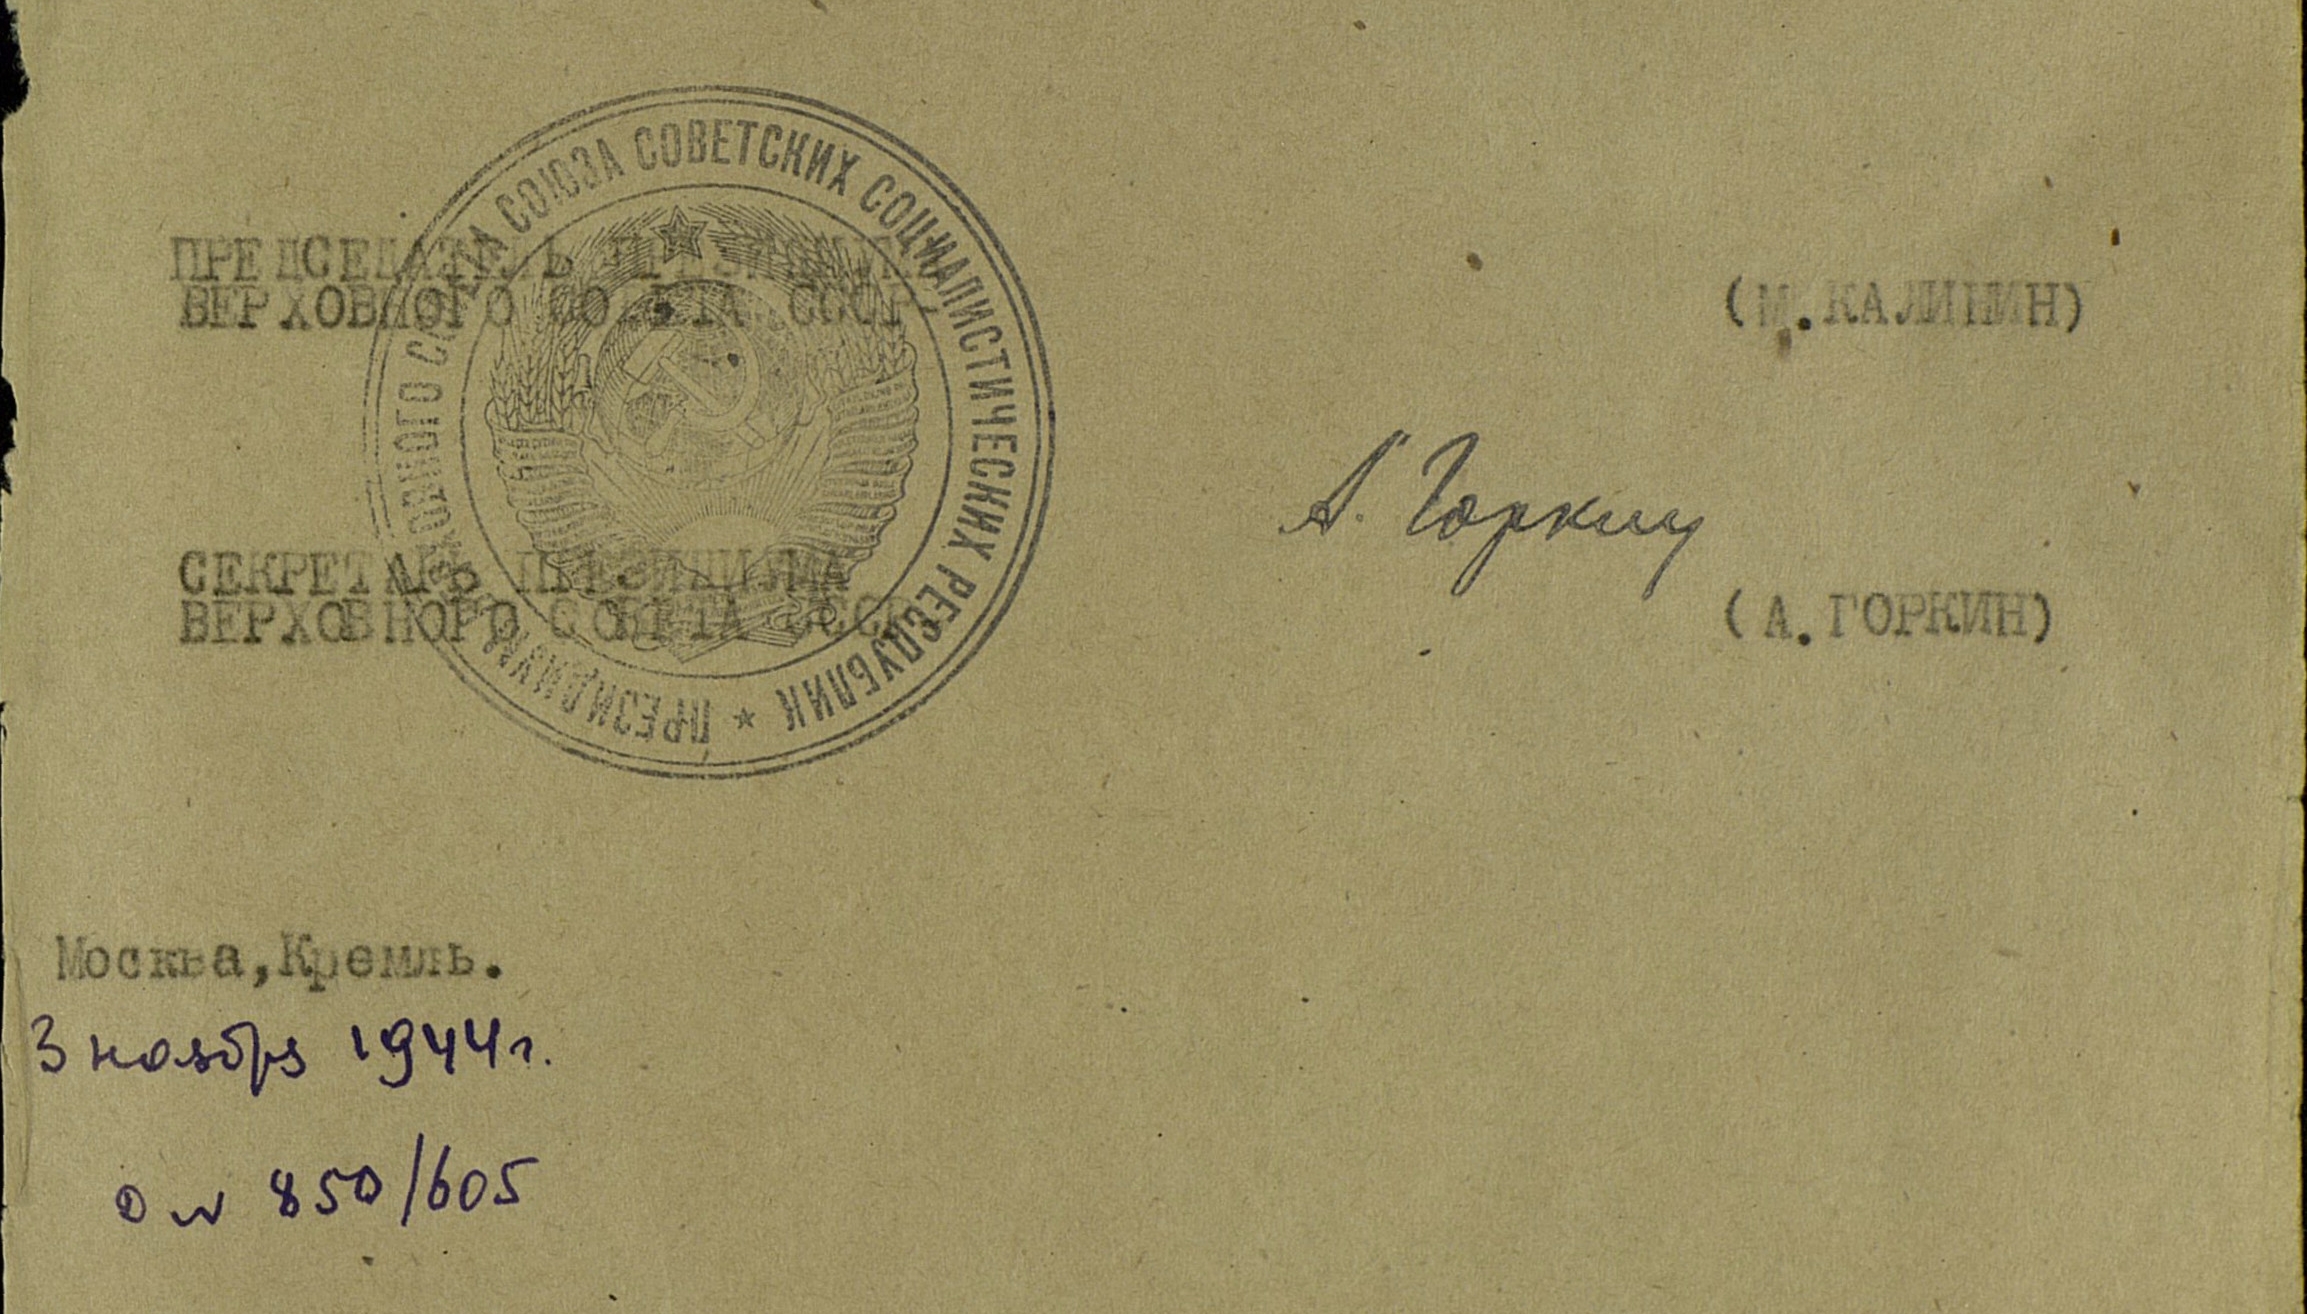 ПРЕЗИДИУМ ВЕРХОВНОГО СОВЕТА СОЮЗА СОВЕТСКИХ СОЦИАЛИСТИЧЕСКИХ РЕСПУБЛИК
ПРЕДСЕДАТЕЛЬ ПРЕЗИДИУМА
ВЕРХОВНОГО СОВЕТА СССР
(М.КАЛИНИН)
А. Горкин
СЕКРЕТАРЬ ПРЕЗИДИУМА
ВЕРХОВНОГО СОВЕТА СССР
(А.ГОРКИН)
Москва,Кремль.
3 ноября 1944г.
850/605